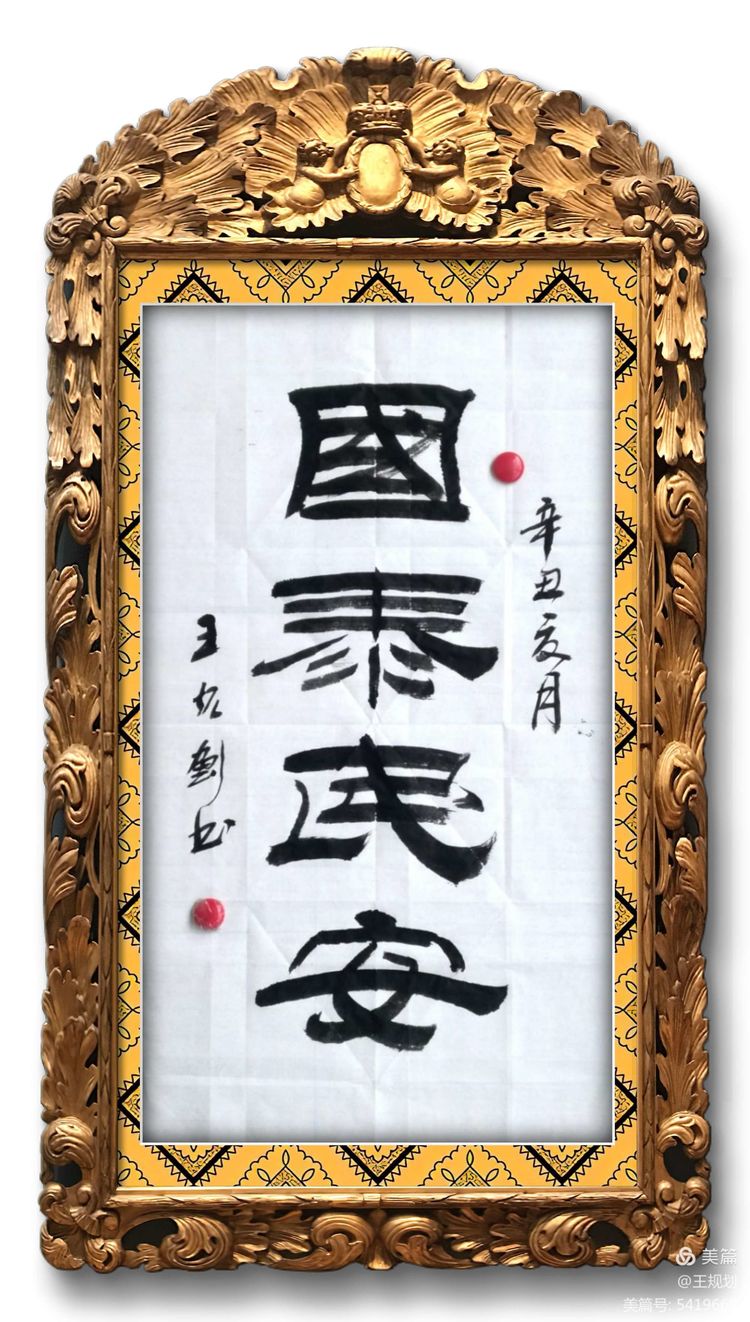 國泰民安
辛丑亥月
王久剑书
美篇
@王规划
美篇号: 541966